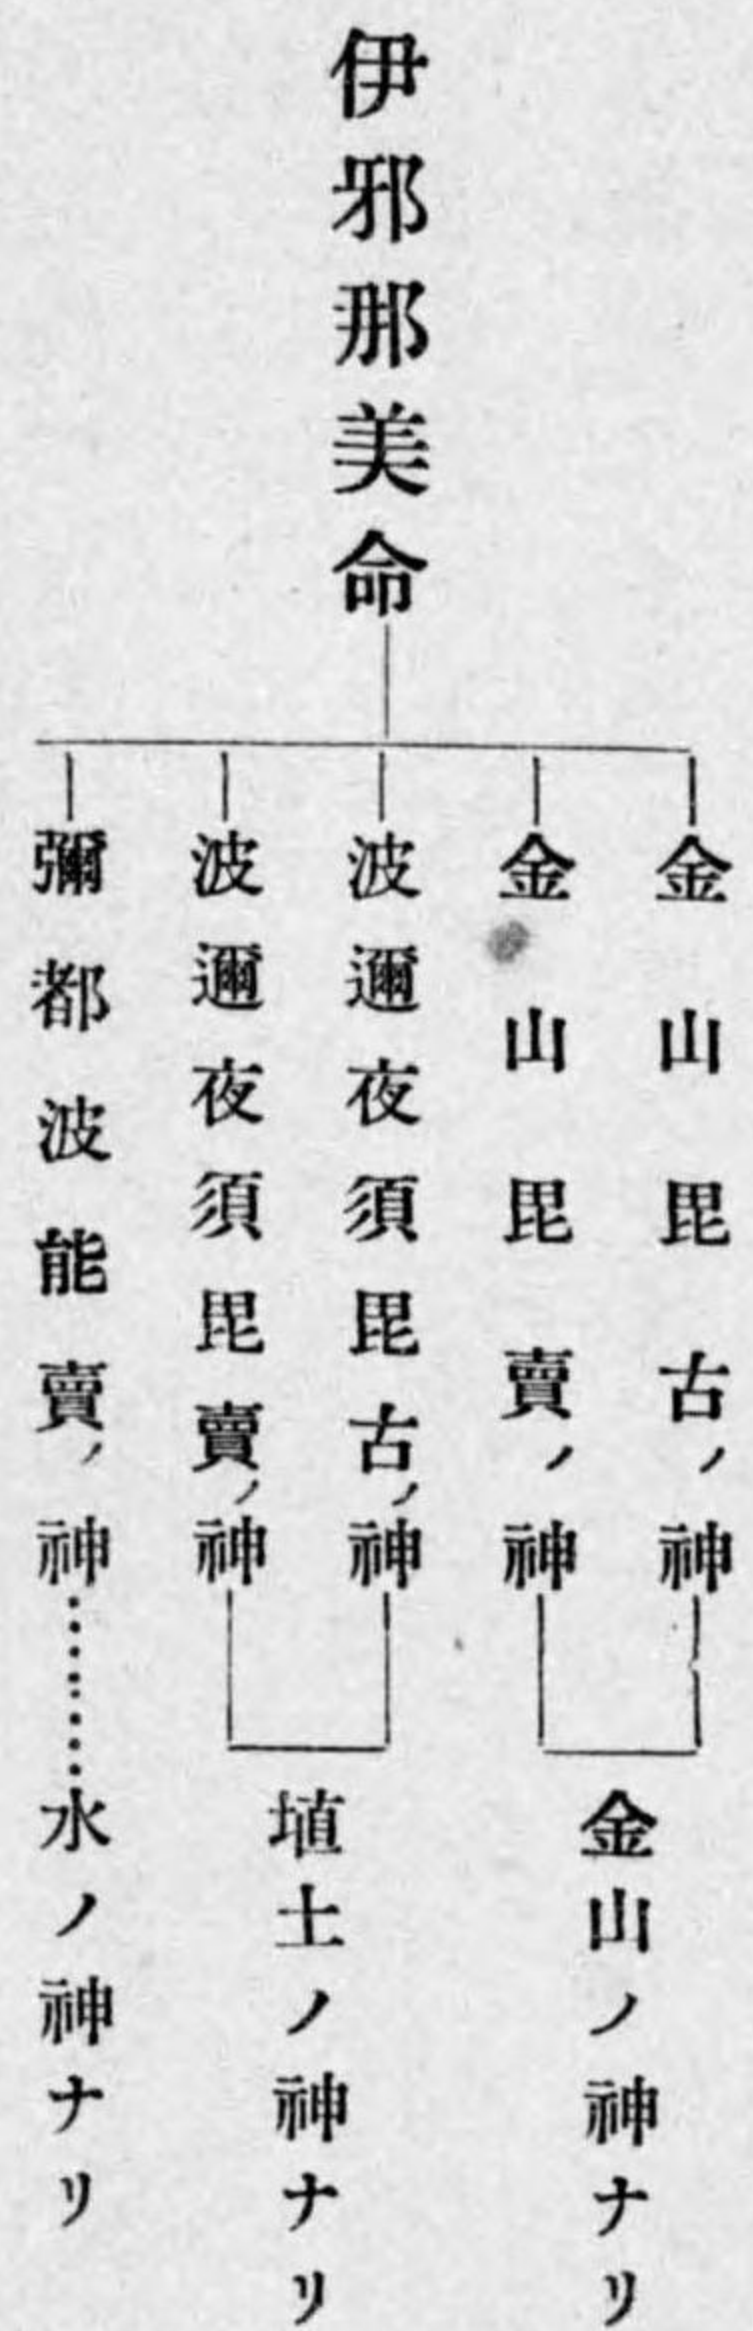 伊邪那美命
金山毘古ノ神
金山毘賣ノ神
金山ノ神ナリ
波邇夜須毘古ノ神
波邇夜須毘賣ノ神
埴土ノ神ナリ
彌都波能賣ノ神
水ノ神ナリ